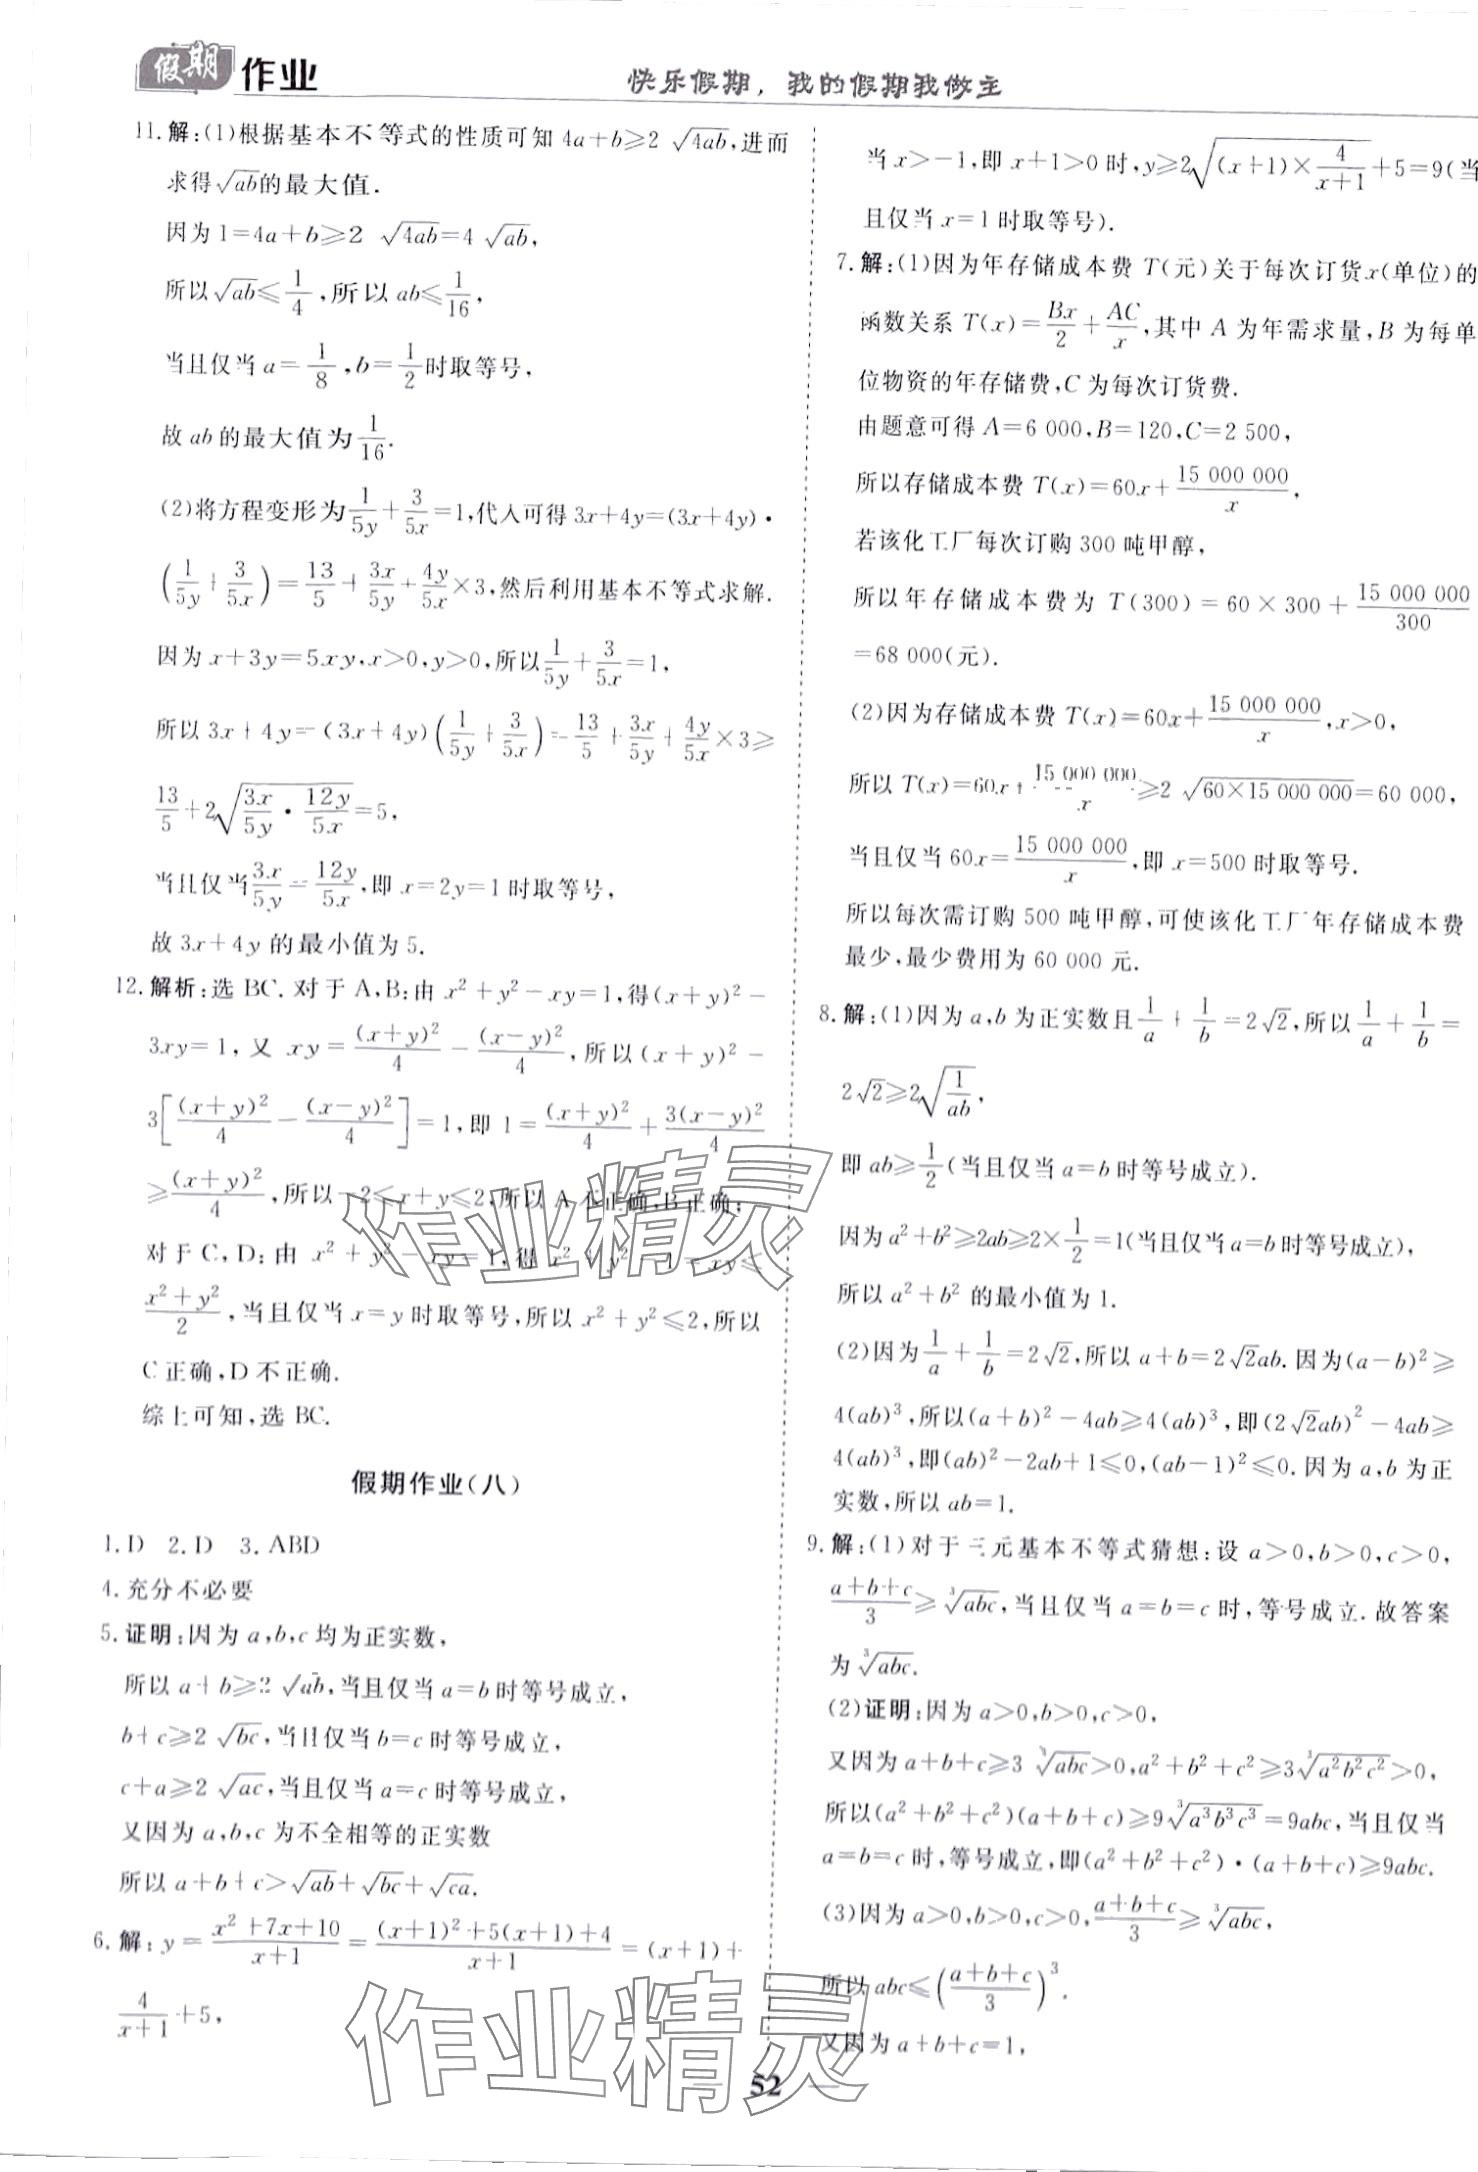 假期作业
快乐假期，我的假期我做主
11.解:(1)根据基本不等式的性质可知 4a+b≥2√(4ab),进而
求得√(ab)的最大值.
因为 1=4a+b≥2√(4ab)=4√(ab),
所以√(ab)≤1/4,所以 ab≤1/16,
当且仅当 a=1/8,b=1/2时取等号,
故 ab 的最大值为1/16.
(2)将方程变形为1/(5y)+3/(5x)=1,代入可得 3x+4y=(3x+4y)·
(1/(5y)+3/(5x))=13/5+3x/(5y)+4y/(5x)×3,然后利用基本不等式求解.
因为 x+3y=5xy,x>0,y>0,所以1/(5y)+3/(5x)=1,
所以 3x+4y=(3x+4y)(1/(5y)+3/(5x))=13/5+3x/(5y)+4y/(5x)×3≥
13/5+2√(3x/(5y)·12y/(5x))=5,
当且仅当3x/(5y)=12y/(5x),即 x=2y=1 时取等号,
故 3x+4y 的最小值为 5.
12.解析:选 BC.对于 A,B:由 x²+y²-xy=1,得(x+y)²-
3xy=1,又 xy=(x+y)²/4-(x-y)²/4,所以(x+y)²-
3[(x+y)²/4-(x-y)²/4]=1,即 1=(x+y)²/4+3(x-y)²/4
≥(x+y)²/4,所以-2≤x+y≤2,所以 A 不正确,B 正确;
对于 C,D:由 x²+y²-xy=1,得 x²+y²-1=xy≤
(x²+y²)/2,当且仅当 x=y 时取等号,所以 x²+y²≤2,所以
C 正确,D 不正确.
综上可知,选 BC.
假期作业(八)
1.D 2.D 3.ABD
4.充分不必要
5.证明:因为 a,b,c 均为正实数,
所以 a+b≥2√(ab),当且仅当 a=b 时等号成立,
b+c≥2√(bc),当且仅当 b=c 时等号成立,
c+a≥2√(ac),当且仅当 a=c 时等号成立,
又因为 a,b,c 为不全相等的正实数
所以 a+b+c>√(ab)+√(bc)+√(ca).
6.解:y=(x²+7x+10)/(x+1)=((x+1)²+5(x+1)+4)/(x+1)=(x+1)+
4/(x+1)+5,
当 x>-1,即 x+1>0 时,y≥2√((x+1)×4/(x+1))+5=9(当
且仅当 x=1 时取等号).
7.解:(1)因为年存储成本费 T(元)关于每次订货 x(单位)的
函数关系 T(x)=Bx/2+AC/x,其中 A 为年需求量,B 为每单
位物资的年存储费,C 为每次订货费.
由题意可得 A=6 000,B=120,C=2 500,
所以存储成本费 T(x)=60x+15 000 000/x,
若该化工厂每次订购 300 吨甲醇,
所以年存储成本费为 T(300)=60×300+15 000 000/300
=68 000(元).
(2)因为存储成本费 T(x)=60x+15 000 000/x,x>0,
所以 T(x)=60x+15 000 000/x≥2√(60×15 000 000)=60 000,
当且仅当 60x=15 000 000/x,即 x=500 时取等号.
所以每次需订购 500 吨甲醇,可使该化工厂年存储成本费
最少,最少费用为 60 000 元.
8.解:(1)因为 a,b 为正实数且1/a+1/b=2√2,所以1/a+1/b=
2√2≥2√(1/(ab)),
即 ab≥1/2(当且仅当 a=b 时等号成立).
因为 a²+b²≥2ab≥2×1/2=1(当且仅当 a=b 时等号成立),
所以 a²+b² 的最小值为 1.
(2)因为1/a+1/b=2√2,所以 a+b=2√2ab.因为(a-b)²≥
4(ab)³,所以(a+b)²-4ab≥4(ab)³,即(2√2ab)²-4ab≥
4(ab)³,即(ab)²-2ab+1≤0,(ab-1)²≤0.因为 a,b 为正
实数,所以 ab=1.
9.解:(1)对于三元基本不等式猜想:设 a>0,b>0,c>0,
(a+b+c)/3≥∛(abc),当且仅当 a=b=c 时,等号成立.故答案
为∛(abc).
(2)证明:因为 a>0,b>0,c>0,
又因为 a+b+c≥3∛(abc)>0,a²+b²+c²≥3∛(a²b²c²)>0,
所以(a²+b²+c²)(a+b+c)≥9∛(a³b³c³)=9abc,当且仅当
a=b=c 时,等号成立,即(a²+b²+c²)·(a+b+c)≥9abc.
(3)因为 a>0,b>0,c>0,(a+b+c)/3≥∛(abc),
所以 abc≤((a+b+c)/3)³.
又因为 a+b+c=1,
52
作业精灵
作业精灵